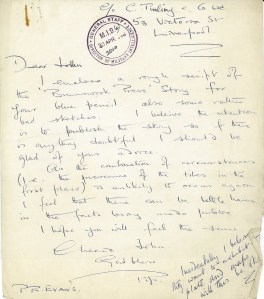 c/o C. Tinling & Co Ltd
53 Victoria St
Liverpool
GENERAL STAFF
M.I.9
Dear John
I enclose a rough script of
the 'Brunswick Press' Story for
your blue pencil also some rather
bad sketches. I believe the intention
is to publish the story so if there
is anything doubtful I should be
glad of your advice.
As the combination of circumstances
(i.e. the presence of the tiles in the
first place) is unlikely to occur again
I feel that there can be little harm
in the facts being made public
I hope you will feel the same
Cheerio John
God bless
P.R. EVANS.
Incidentally I believe
they want a
and
will this be OK